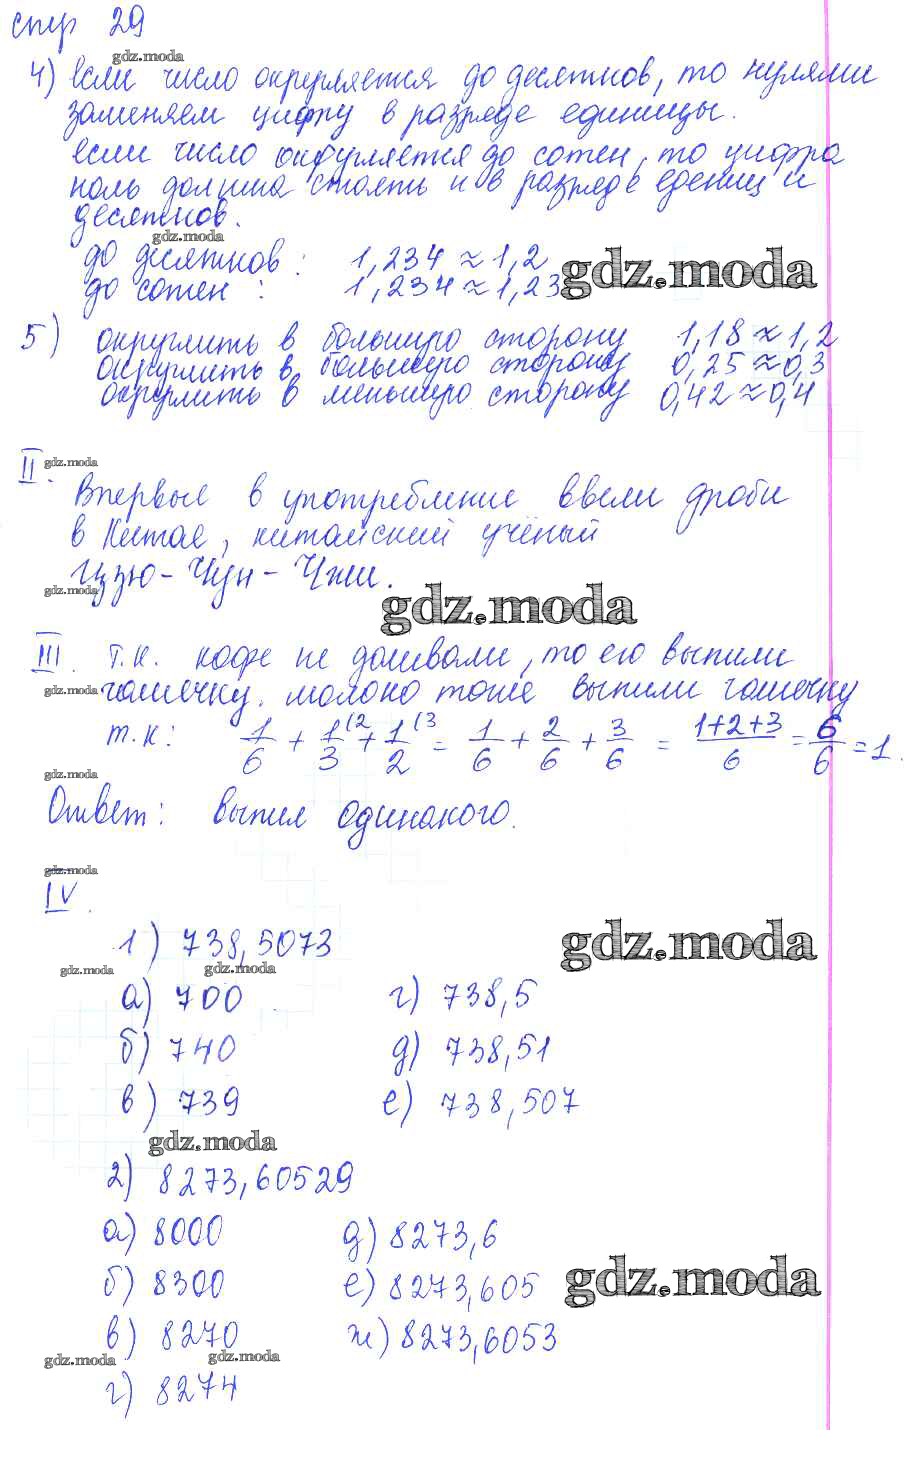 стр 29
gdz.moda
4) если число округляется до десятков, то нулями
заменяем цифру в разряде единицы.
если число округляется до сотен, то цифра
ноль должна стоять и в разряде едениц и
десятков.
gdz.moda
до десятков: 1,234 ≈ 1,2
до сотен: 1,234 ≈ 1,23
gdz.moda
5) округлить в большую сторону 1,18 ≈ 1,2
округлить в большую сторону 0,25 ≈ 0,3
округлить в меньшую сторону 0,42 ≈ 0,4
II.
gdz.moda
Впервые в употребление ввели дроби
в Китае, китайский учёный
Цзю-Чун-Чжи.
gdz.moda
gdz.moda
III. т.к. кофе не доливали, то его выпили
gdz.moda
чашечку. молоко тоже выпили чашечку
т.к: 1/6 + 1/3 (2 + 1/2 (3 = 1/6 + 2/6 + 3/6 = 1+2+3/6 = 6/6 = 1.
gdz.moda
Ответ: выпил одинакого.
gdz.moda
IV.
1) 738,5073
gdz.moda
gdz.moda gdz.moda
а) 700 г) 738,5
б) 740 д) 738,51
в) 739 е) 738,507
gdz.moda
2) 8273,60529
а) 8000 д) 8273,6
б) 8300 е) 8273,605
gdz.moda
в) 8270 ж) 8273,6053
gdz.moda gdz.moda
г) 8274